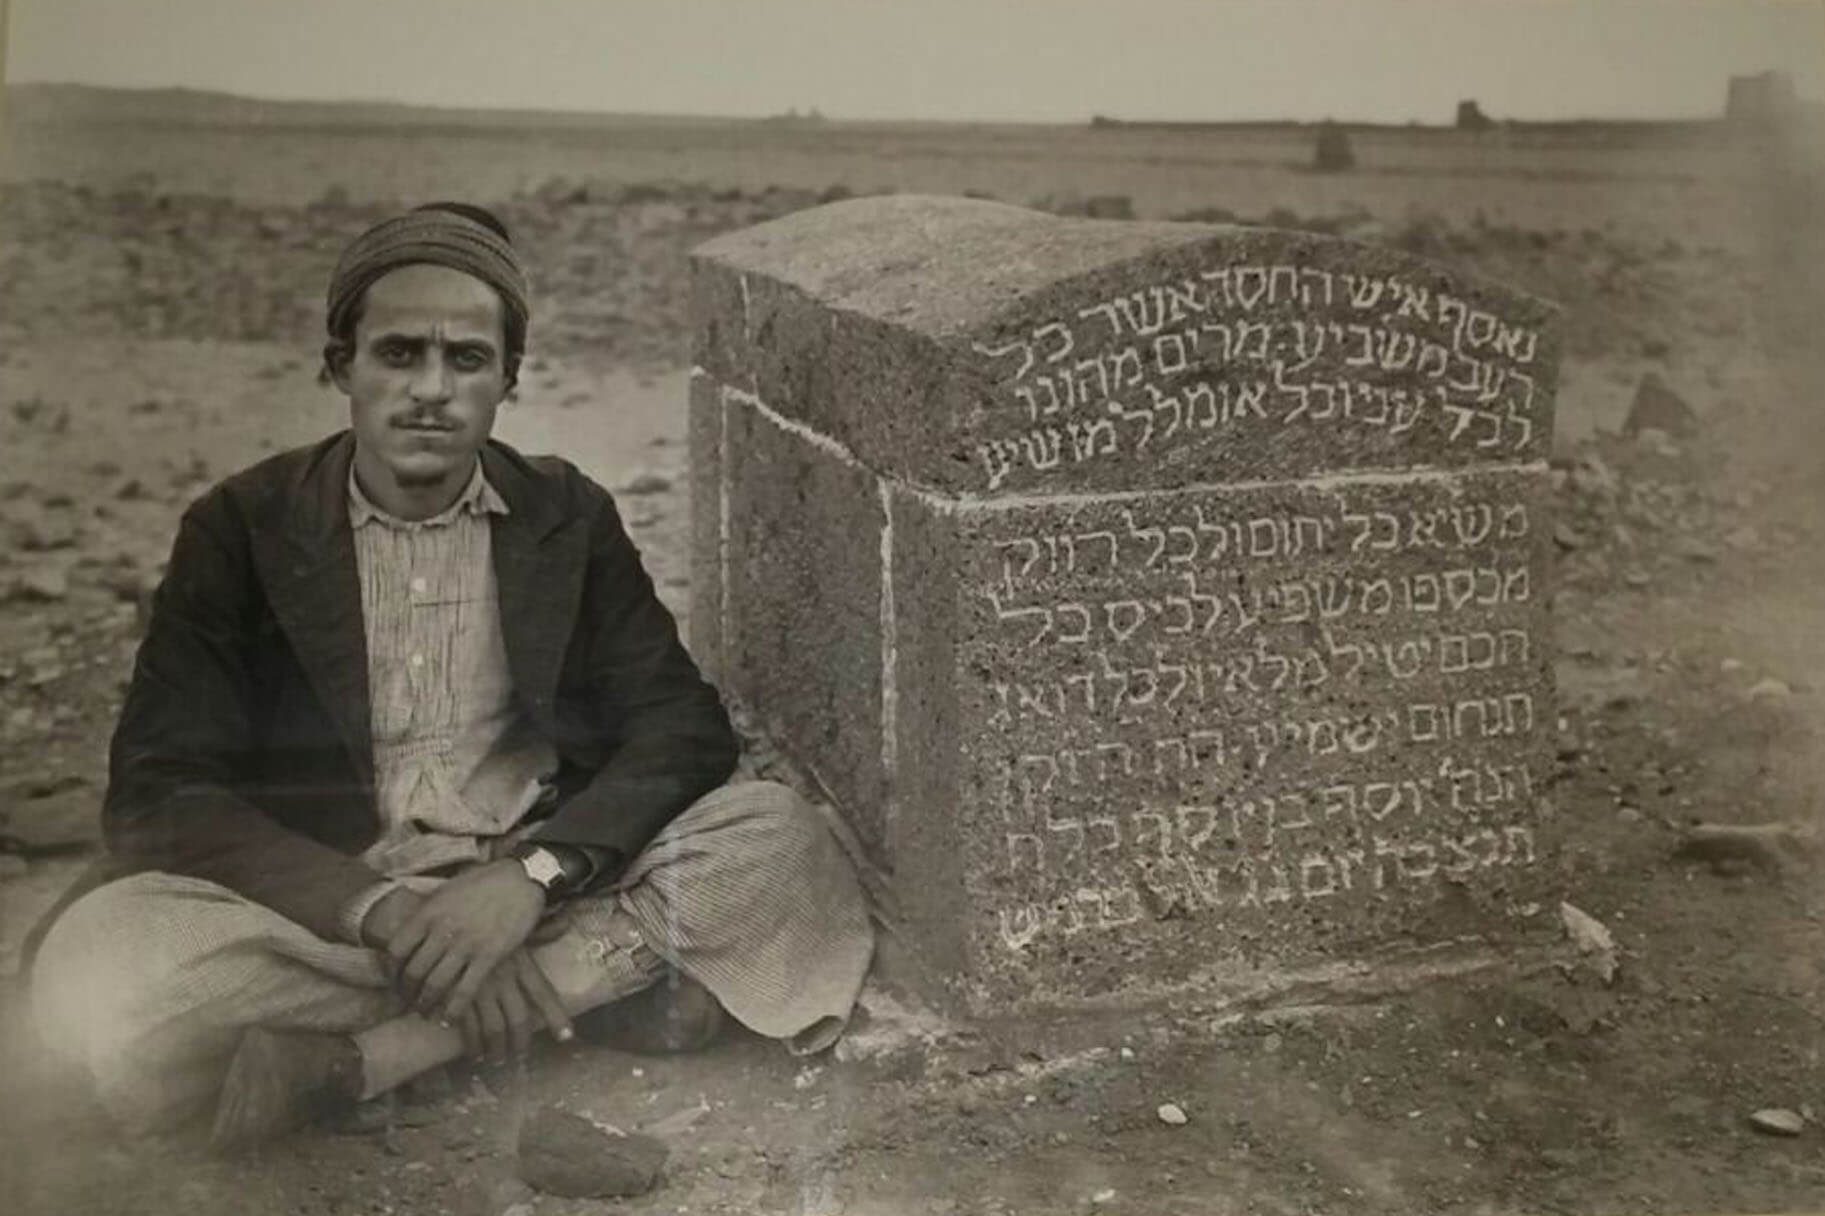 נאסף איש החסד אשר כל
רעב משביע מרים מהונו
לכל עני וכל אומלל מושיע
משיא כל יתום ולכל רווק
מכספו משפיע לכיס כל
חכם יטיל מלאיו ולכל דואג
תנחום ישמיע הה
הנה' יוסף בן יוסף
תנצבה יום